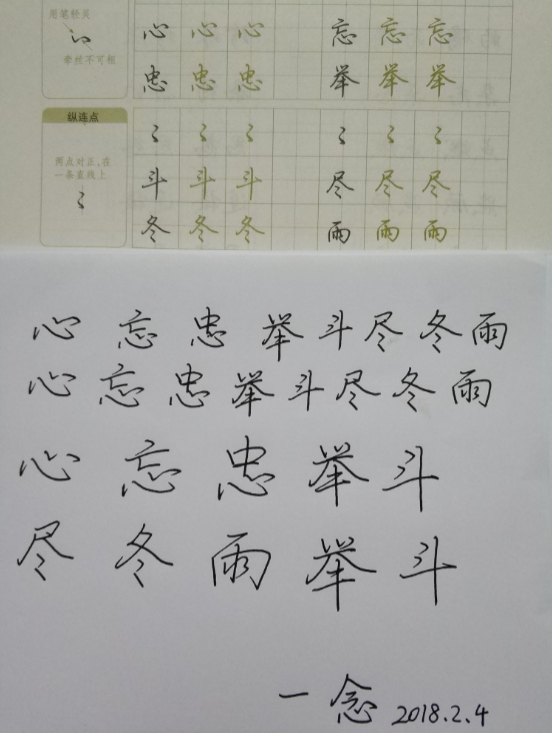 用笔轻灵
牵丝不可粗
心 心 心 忘 忘 忘
忠 忠 忠 举 举 举
纵连点
两点对正,在
一条直线上
斗 斗 斗 尽 尽 尽
冬 冬 冬 雨 雨 雨
心 忘 忠 举 斗 尽 冬 雨
心 忘 忠 举 斗 尽 冬 雨
心 忘 忠 举 斗
尽 冬 雨 举 斗
一念 2018.2.4